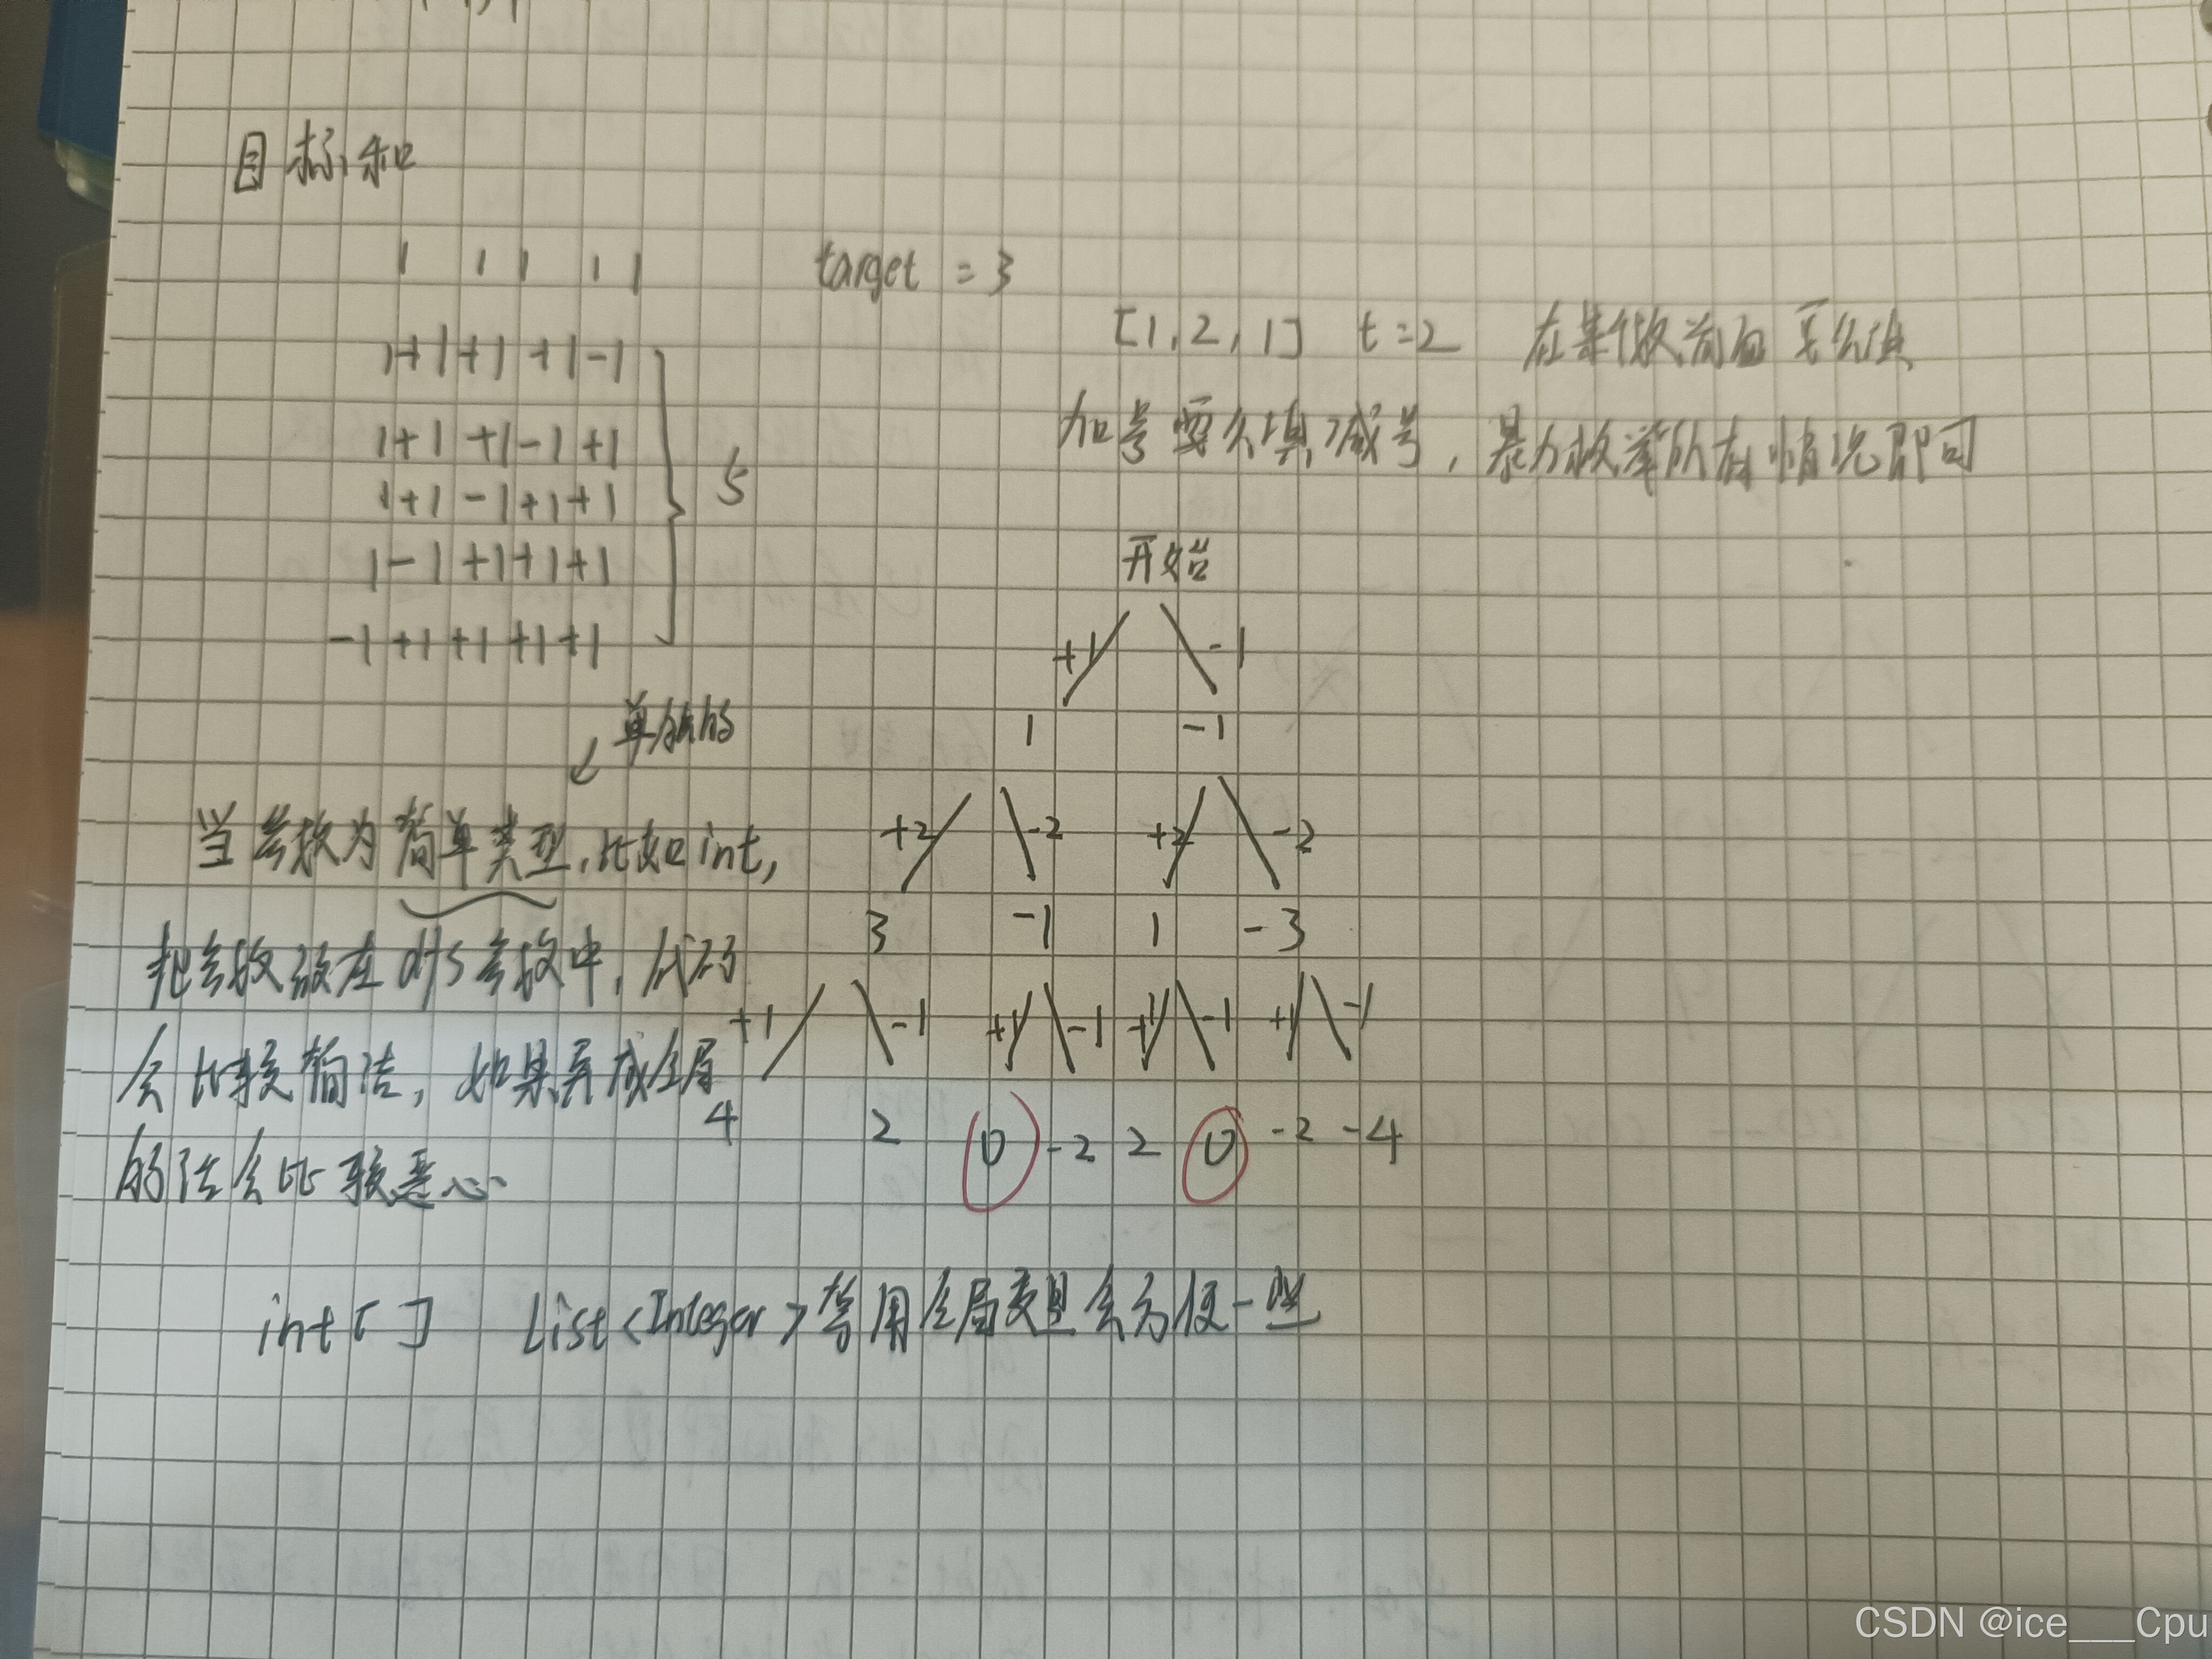 目标和
1 1 1 1 1 target = 3
1+1+1+1-1
1+1+1-1+1
1+1-1+1+1
1-1+1+1+1
-1+1+1+1+1
5
[1,2,1] t=2 在某个数前面要么填
加号要么填减号,暴力枚举所有情况即可
开始
+1 -1
1 -1
+2 -2 +2 -2
3 -1 1 -3
+1 -1 +1 -1 +1 -1 +1 -1
4 2 0 -2 2 0 -2 -4
单独的
当参数为简单类型,比如int,
把参数放在dfs参数中,代码
会比较简洁,如果弄成全局
的话会比较恶心
int[] List<Integer>等用全局变量会方便一些
CSDN @ice___Cpu